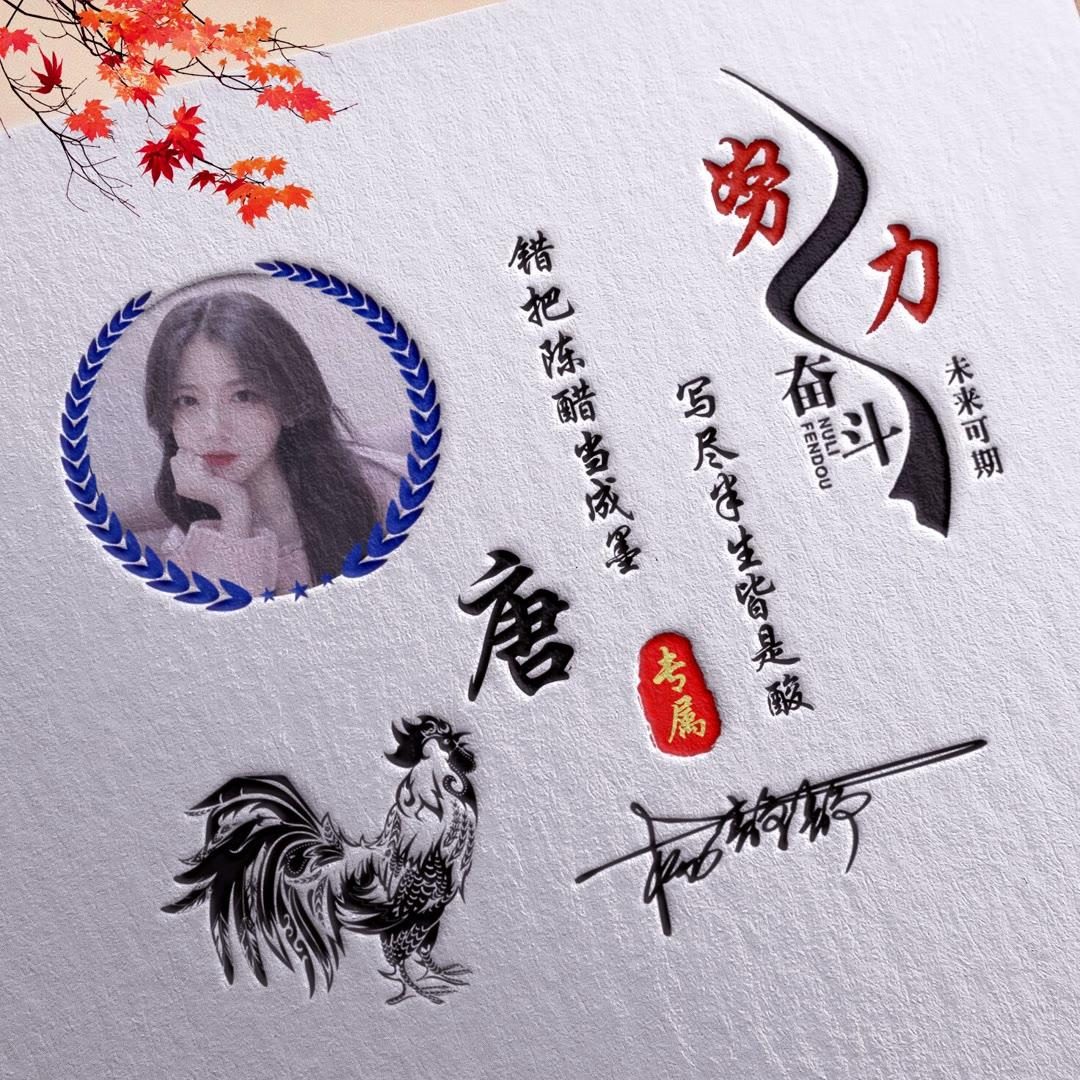 努力
奋斗
NULI
FENDOU
未来可期
错把陈醋当成墨
写尽半生皆是酸
唐
专属